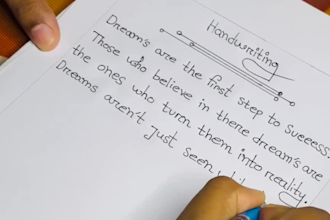 Handwriting
Dream's are the first step to success
Those who believe in there dream's are
the ones who turn them into reality.
Dreams aren't just seen